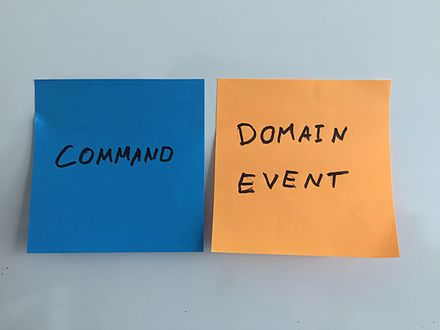 COMMAND
DOMAIN
EVENT